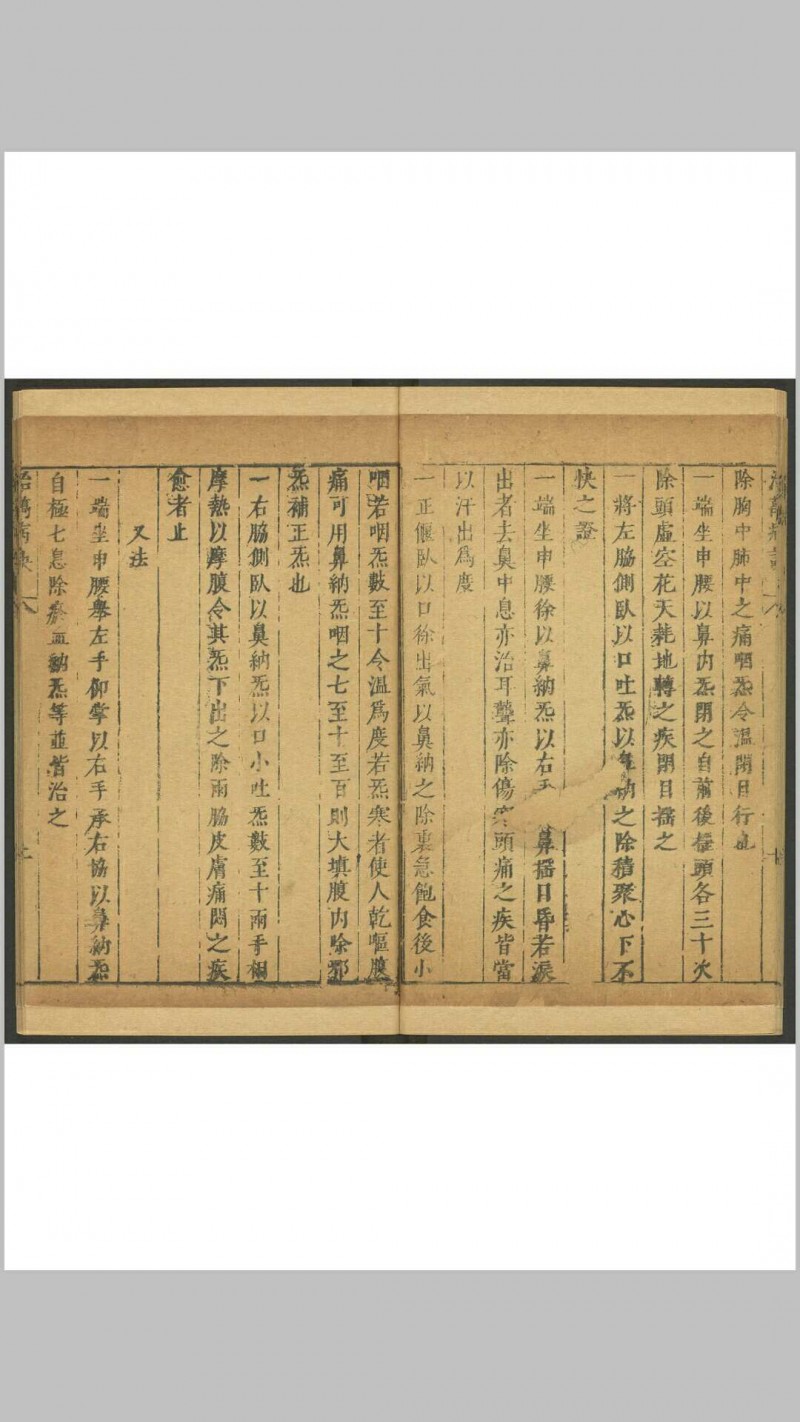 除胸中肺中之痛咽炁令溫閉目行也
一端坐申腰以鼻内炁閉之自前後搖頭各三十次
除頭虛空花天耗地轉之疾閉目搖之
一將左脇側臥以口吐炁以鼻納之除積聚心下不
快之證
一端坐申腰徐以鼻納炁以右手鼻搖目昏若淚
出者去臭中息亦治耳聾亦除傷寒頭痛之疾皆當
以汗出爲度
一正偃臥以口徐出氣以鼻納之除裏急飽食後小
咽若咽炁數至十令溫爲度若炁寒者使人乾嘔腹
痛可用鼻納炁咽之七至十至百則大填腹内除邪
炁補正炁也
一右脇側臥以鼻納炁以口小吐炁數至十兩手相
摩熱以摩腹令其炁下出之除兩脇皮膚痛悶之疾
愈者止
又法
一端坐申腰舉左手仰掌以右手承右協以鼻納炁
自極七息除納炁等並皆治之
治萬病 八